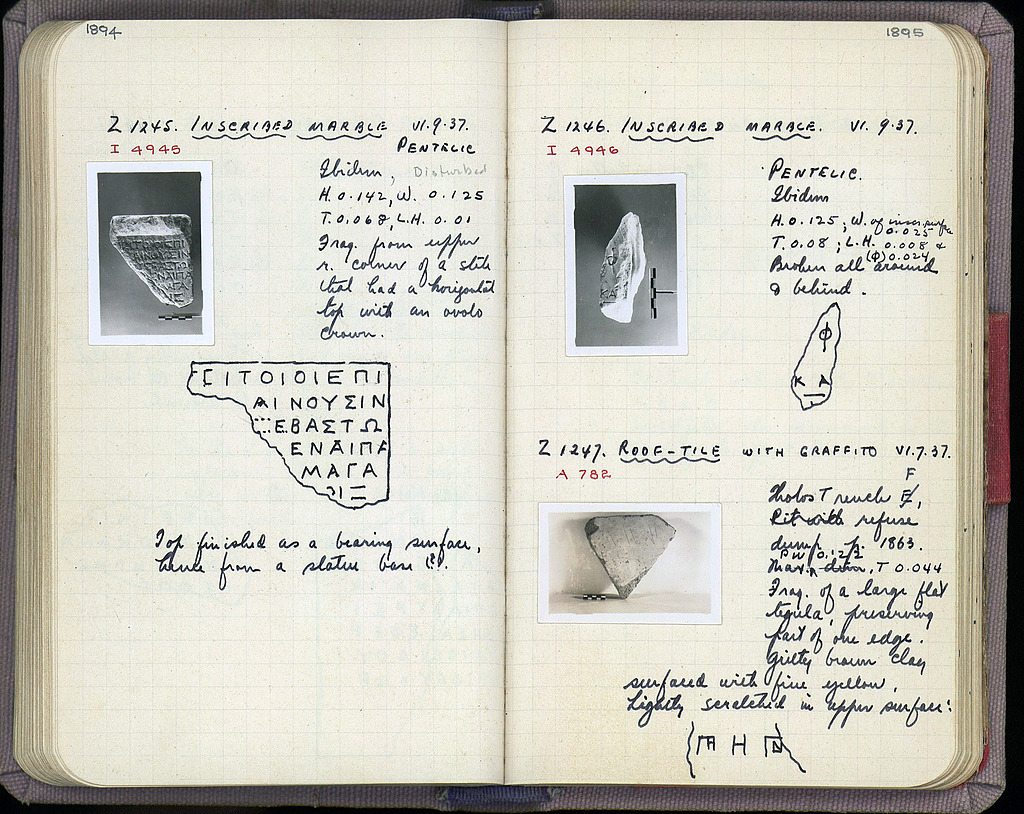 1894
Z 1245. INSCRIBED MARBLE VI.9.37.
I 4945
PENTELIC
Ibidem, Disturbed
H. 0.142, W. 0.125
T. 0.068, L.H. 0.01
Frag. from upper
r. corner of a stele
that had a horizontal
top with an ovolo
crown.
ΣΙΤΟΙΟΙΕΠΙ
ΑΙΝΟΥΣΙΝ
ΣΕΒΑΣΤΩ
ΕΝΔΙΠΑ
ΜΑΓΑ
ΙΞ
Top finished as a bearing surface,
hence from a statue base (?).
1895
Z 1246. INSCRIBED MARBLE. VI.9.37.
I 4946
PENTELIC.
Ibidem
H. 0.125, W. of inscr. surface
0.025
T. 0.08; L.H. 0.008 &
(Φ) 0.024
Broken all around
& behind.
Φ
Κ Α
Z 1247. ROOF-TILE WITH GRAFFITO VI.7.37.
A 782
F
Tholos Trench E,
Pit with refuse
dump, p. 1863.
Max. dim, T 0.044
Frag. of a large flat
tegula, preserving
part of one edge.
Gritty brown clay
surfaced with fine yellow.
Lightly scratched in upper surface:
Η